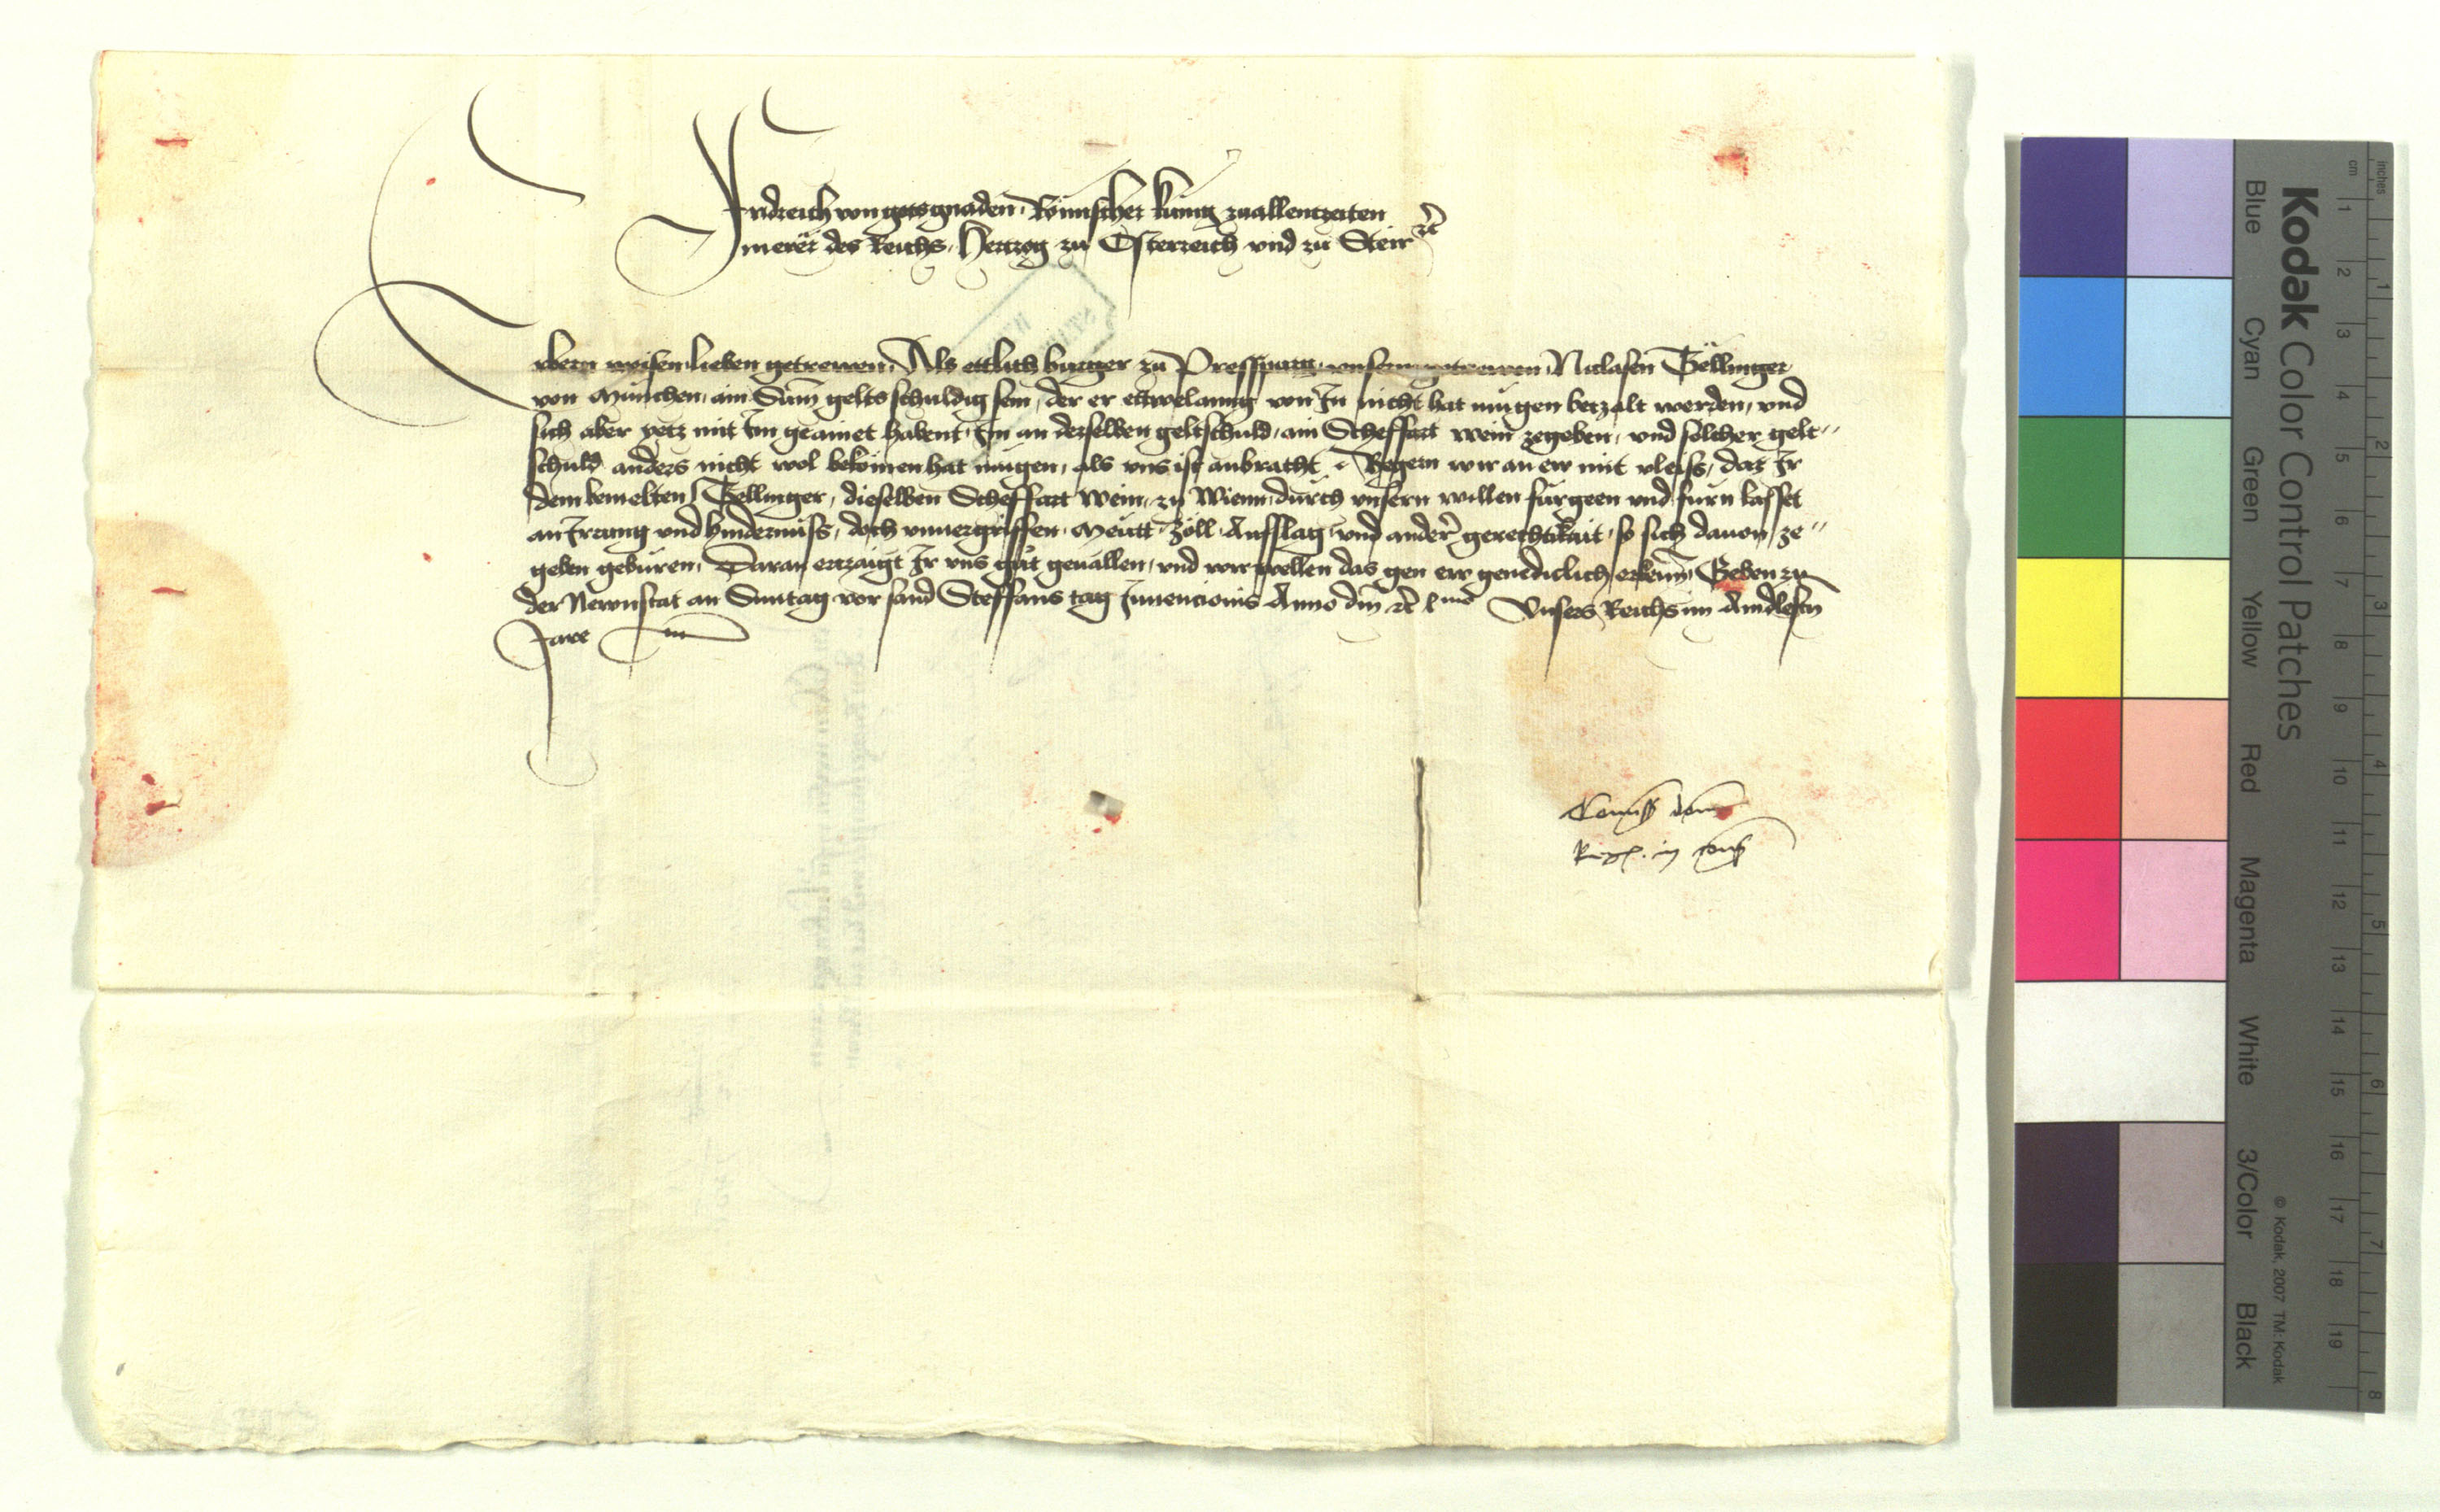 Fridreich von gots gnaden, Römischer kunig zuallentzeiten
merer des Reichs, Hertzog zu Österreich und zu Steir etc
Erbern weisen lieben getrewen. Als ettlich burger zu Presspurg, unserm getrewen, Niclasen Göllinger
von München, ain Sum̄ gelts schuldig sein, der er ettwelanng von In nicht hat mügen betzalt werden, und
sich aber yetz mit im geainet habent, Im an derselben geltschuld, ain Scheffart wein zegeben, und solcher gelt-
schuld anders nicht wol bekomen hat mügen, als uns ist anbracht, Begern wir an ew mit vleiss, daz Ir
dem bemelten Göllinger, dieselben Scheffart wein, zu Wienn, durch unsern willen fürgeen und fürn lasset
an Irrung und hindernüss, doch unvergriffen, Meütt, Zöll, Aufslag, und ander gerechtikait, so sich davon ze-
geben gebüren, Daran ertzaigt Ir uns güt gevallen, und wir wellen das gen ew genediclich erkenn̄, Geben zu
der Newnstat an Suntag vor sand Steffans tag Invencionis Anno dm̄ etc lmo Unsers Reichs im Aindlefin
Jare
Com̄iss dom̄
Regis in cons
Kodak Color Control Patches
Blue Cyan Green Yellow Red Magenta White 3/Color Black
© Kodak, 2007 TM: Kodak
inches 1 2 3 4 5 6 7 8
cm 1 2 3 4 5 6 7 8 9 10 11 12 13 14 15 16 17 18 19